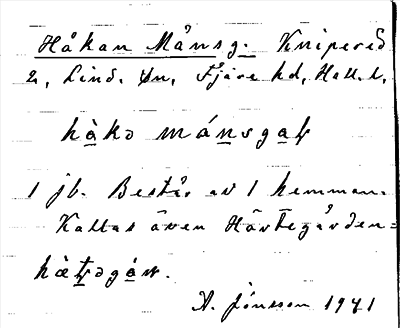 Håkan Månsg. Kniper​ed
2, Lind. sn, Fjäre hd, Hall. l,
hàkə mánsgaɽ
1 jb. Består av 1 hemman.
Kallas även Härtegården=
A. Jönsson 1941